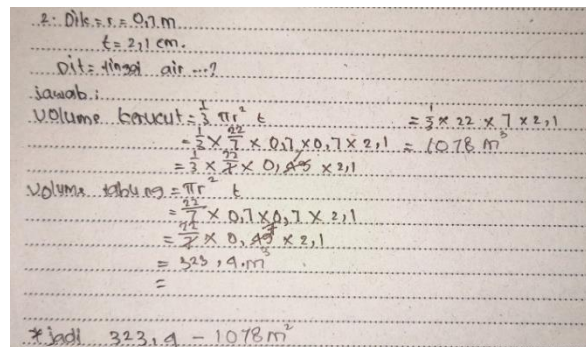 2. Dik = r = 0,7 m
t = 2,1 cm.
Dit = tinggi air ...?
jawab :
Volume kerucut = 1/3 πr² t
= 1/3 × 22/7 × 0,7 × 0,7 × 2,1
= 1/3 × 22/7 × 0,49 × 2,1
= 1/3 × 22 × 7 × 2,1
= 1078 m³
Volume tabung = πr² t
= 22/7 × 0,7 × 0,7 × 2,1
= 22/7 × 0,49 × 2,1
= 323,4 m³
=
* jadi 323,4 - 1078 m²